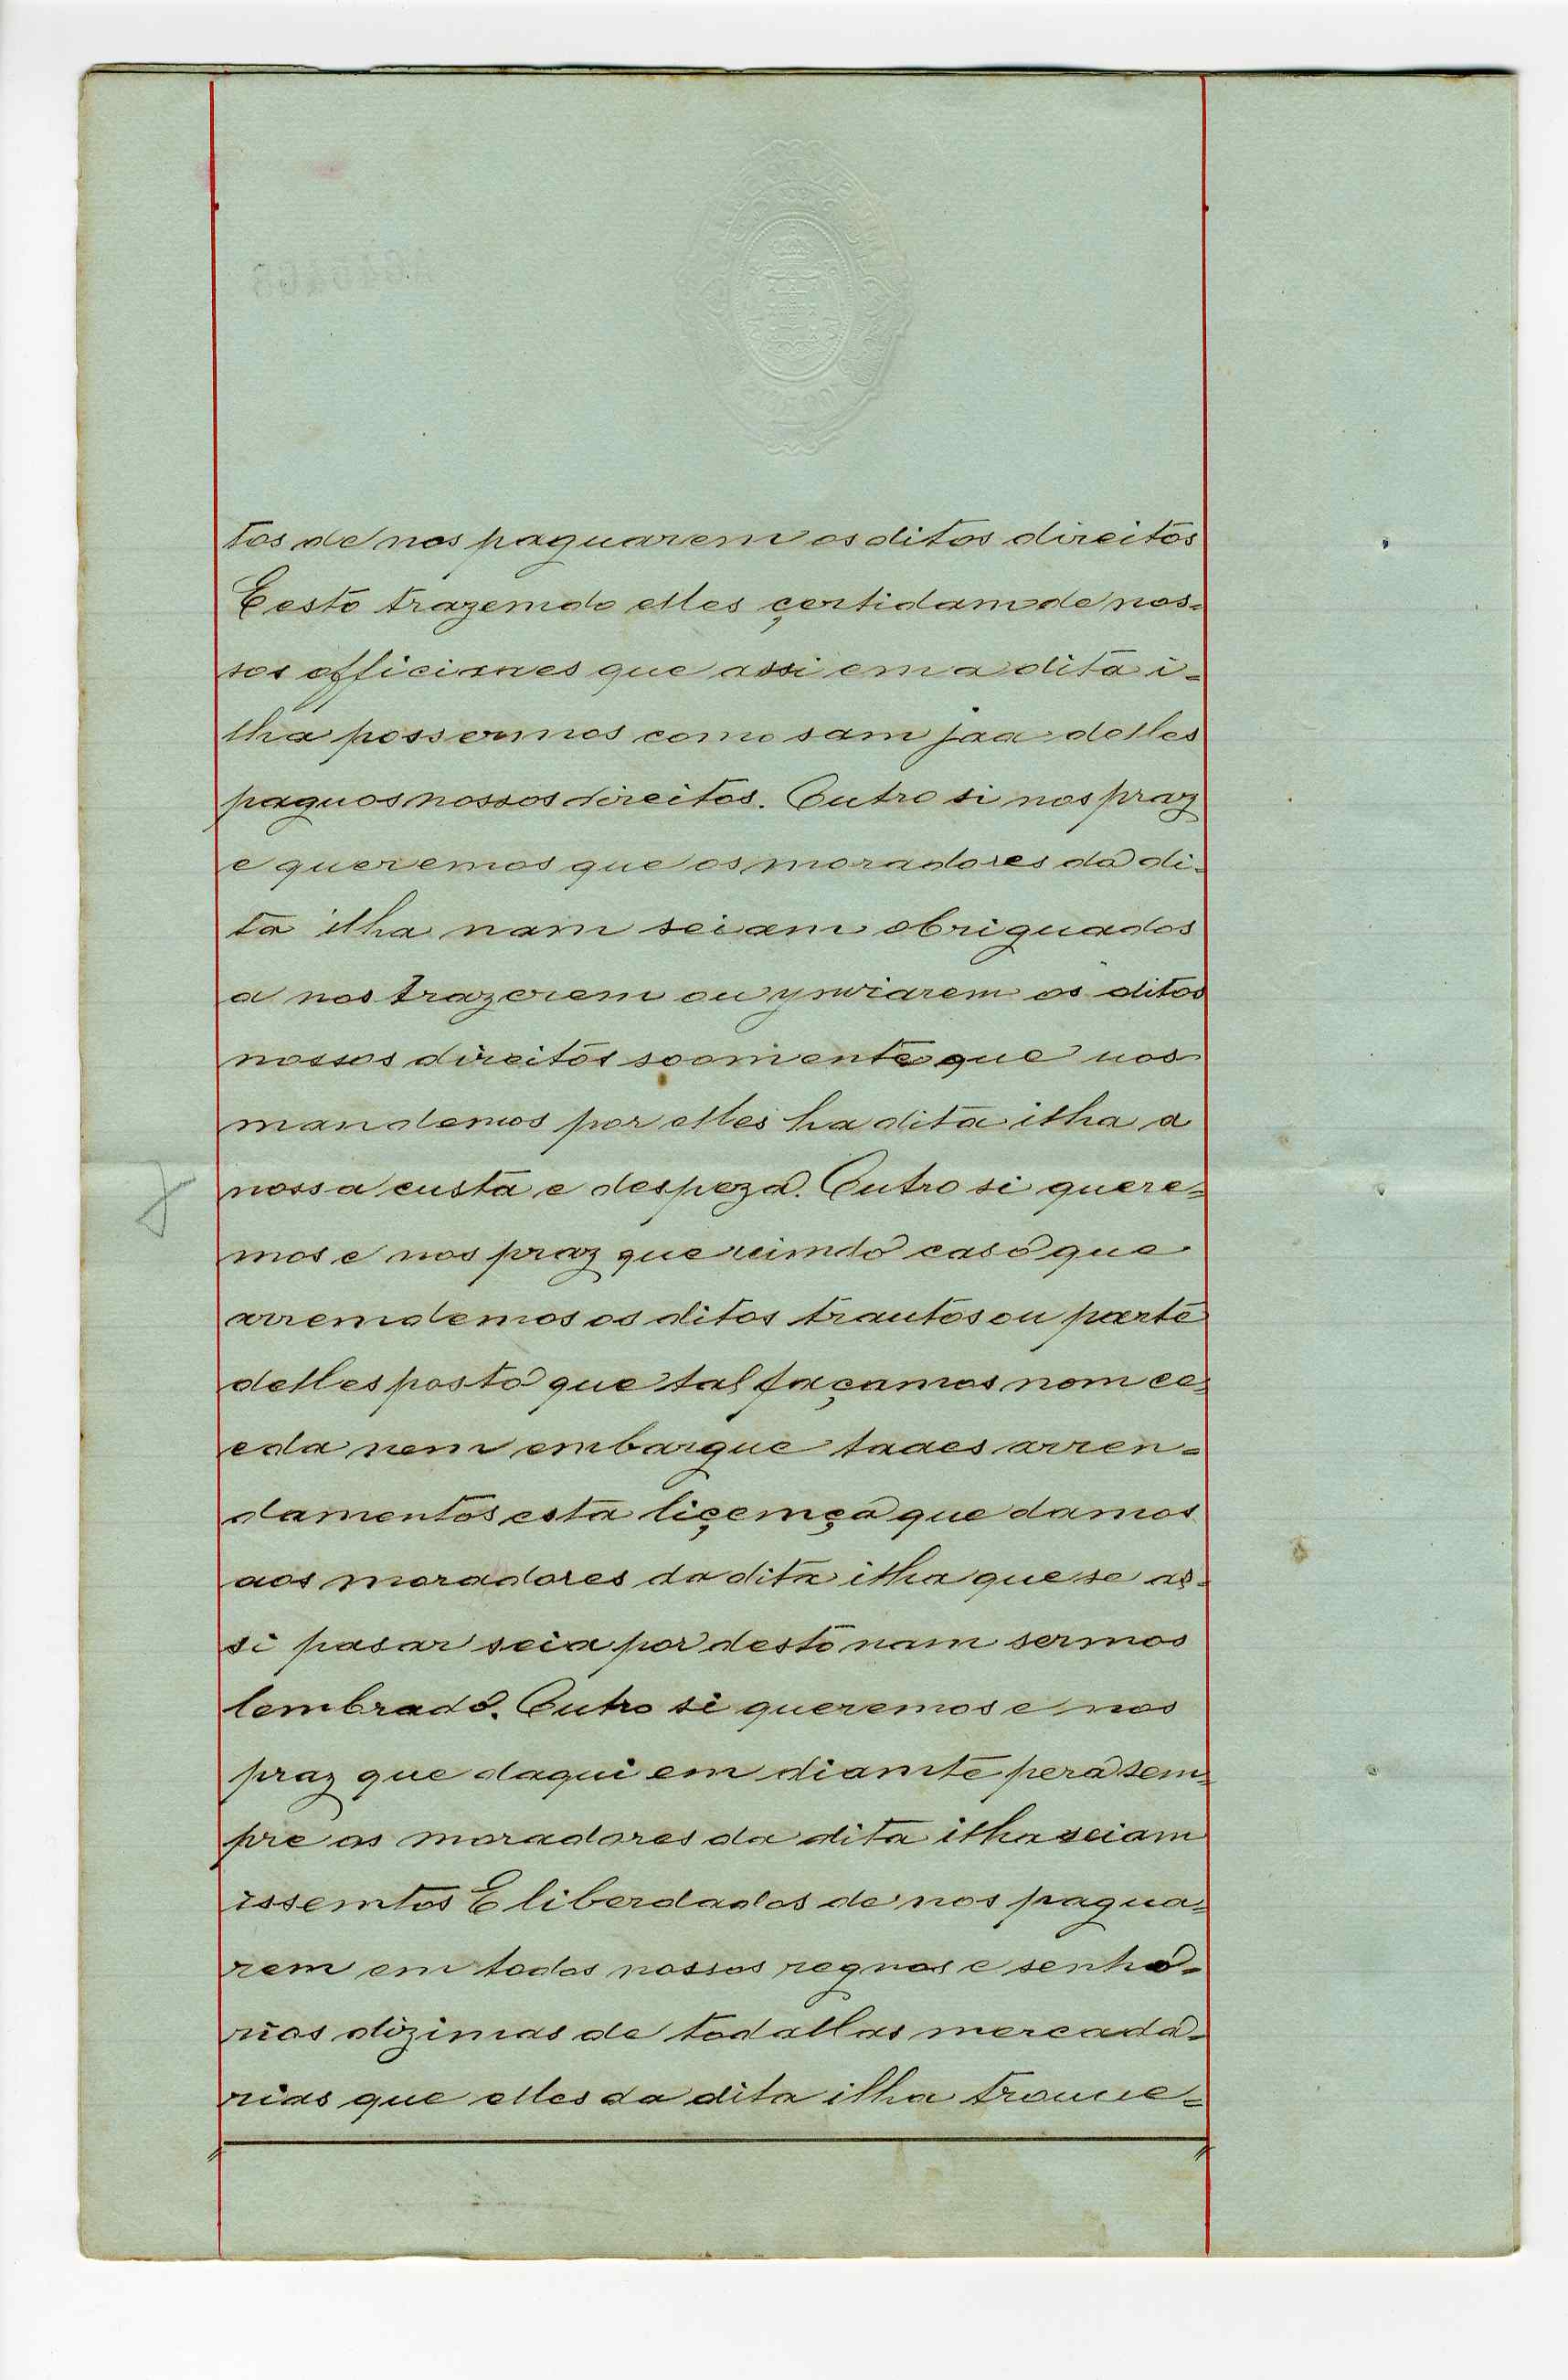 tos de nos paguarem os ditos direitos
E esto trazemdo elles çertidam de nos-
sos officiaaes que assi em a dita i-
lha possermos como sam jaa delles
paguos nossos direitos. Outro si nos praz
e queremos que os moradores da di-
ta ilha nam seiam obriguados
a nos trazerem ou ynviarem os ditos
nossos direitos soomente que nos
mandemos por elles ha dita ilha a
nossa custa e despeza. Outro si quere-
mos e nos praz que viimdo caso que
arremdemos os ditos trautos ou parte
delles posto que tal façamos nom ce-
eda nem embargue taaes arren-
damentos esta liçemça que damos
aos moradores da dita ilha que se as-
si pasar seia por desto nam sermos
lembrado. Outro si queremos e nos
praz que daqui em diamte pera sem-
pre os moradores da dita ilha seiam
issemtos E liberdados de nos pagua-
rem em todos nossos regnos e senho-
rios dizimas de todallas mercada-
rias que elles da dita ilha trouue-